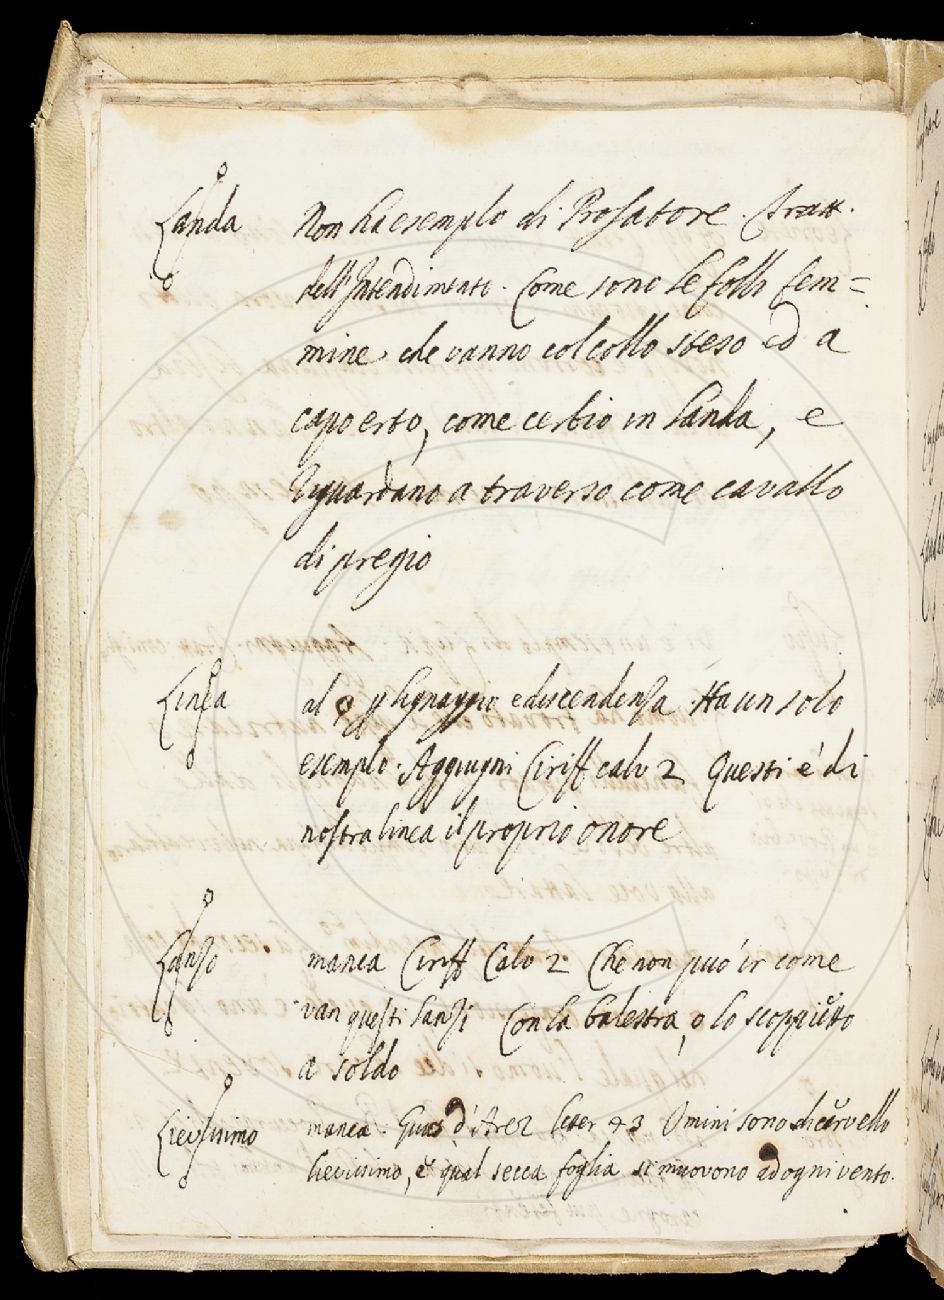 Landa Non ha esempio di Prosatore. Tratt.
dell'Intendimento. Come sono le folli fem=
mine che vanno col collo steso ed a
capo erto, come cerbio in landa, e
sguardano a traverso come cavallo
di pregio
Linea al § p lignaggio e descendenza. Ha un solo
esempio. Aggiugni Ciriff calv 2 Questi é di
nostra linea il proprio onore
Lanzo manca Ciriff Calv 2. Che non può ir come
van questi lanzi Con la balestra, o lo scoppietto
a soldo
Lievissimo manca. Guitt d'Arez leter 43 Omini sono di cervello
lievissimo, e qual secca foglia si muovono ad ogni vento.